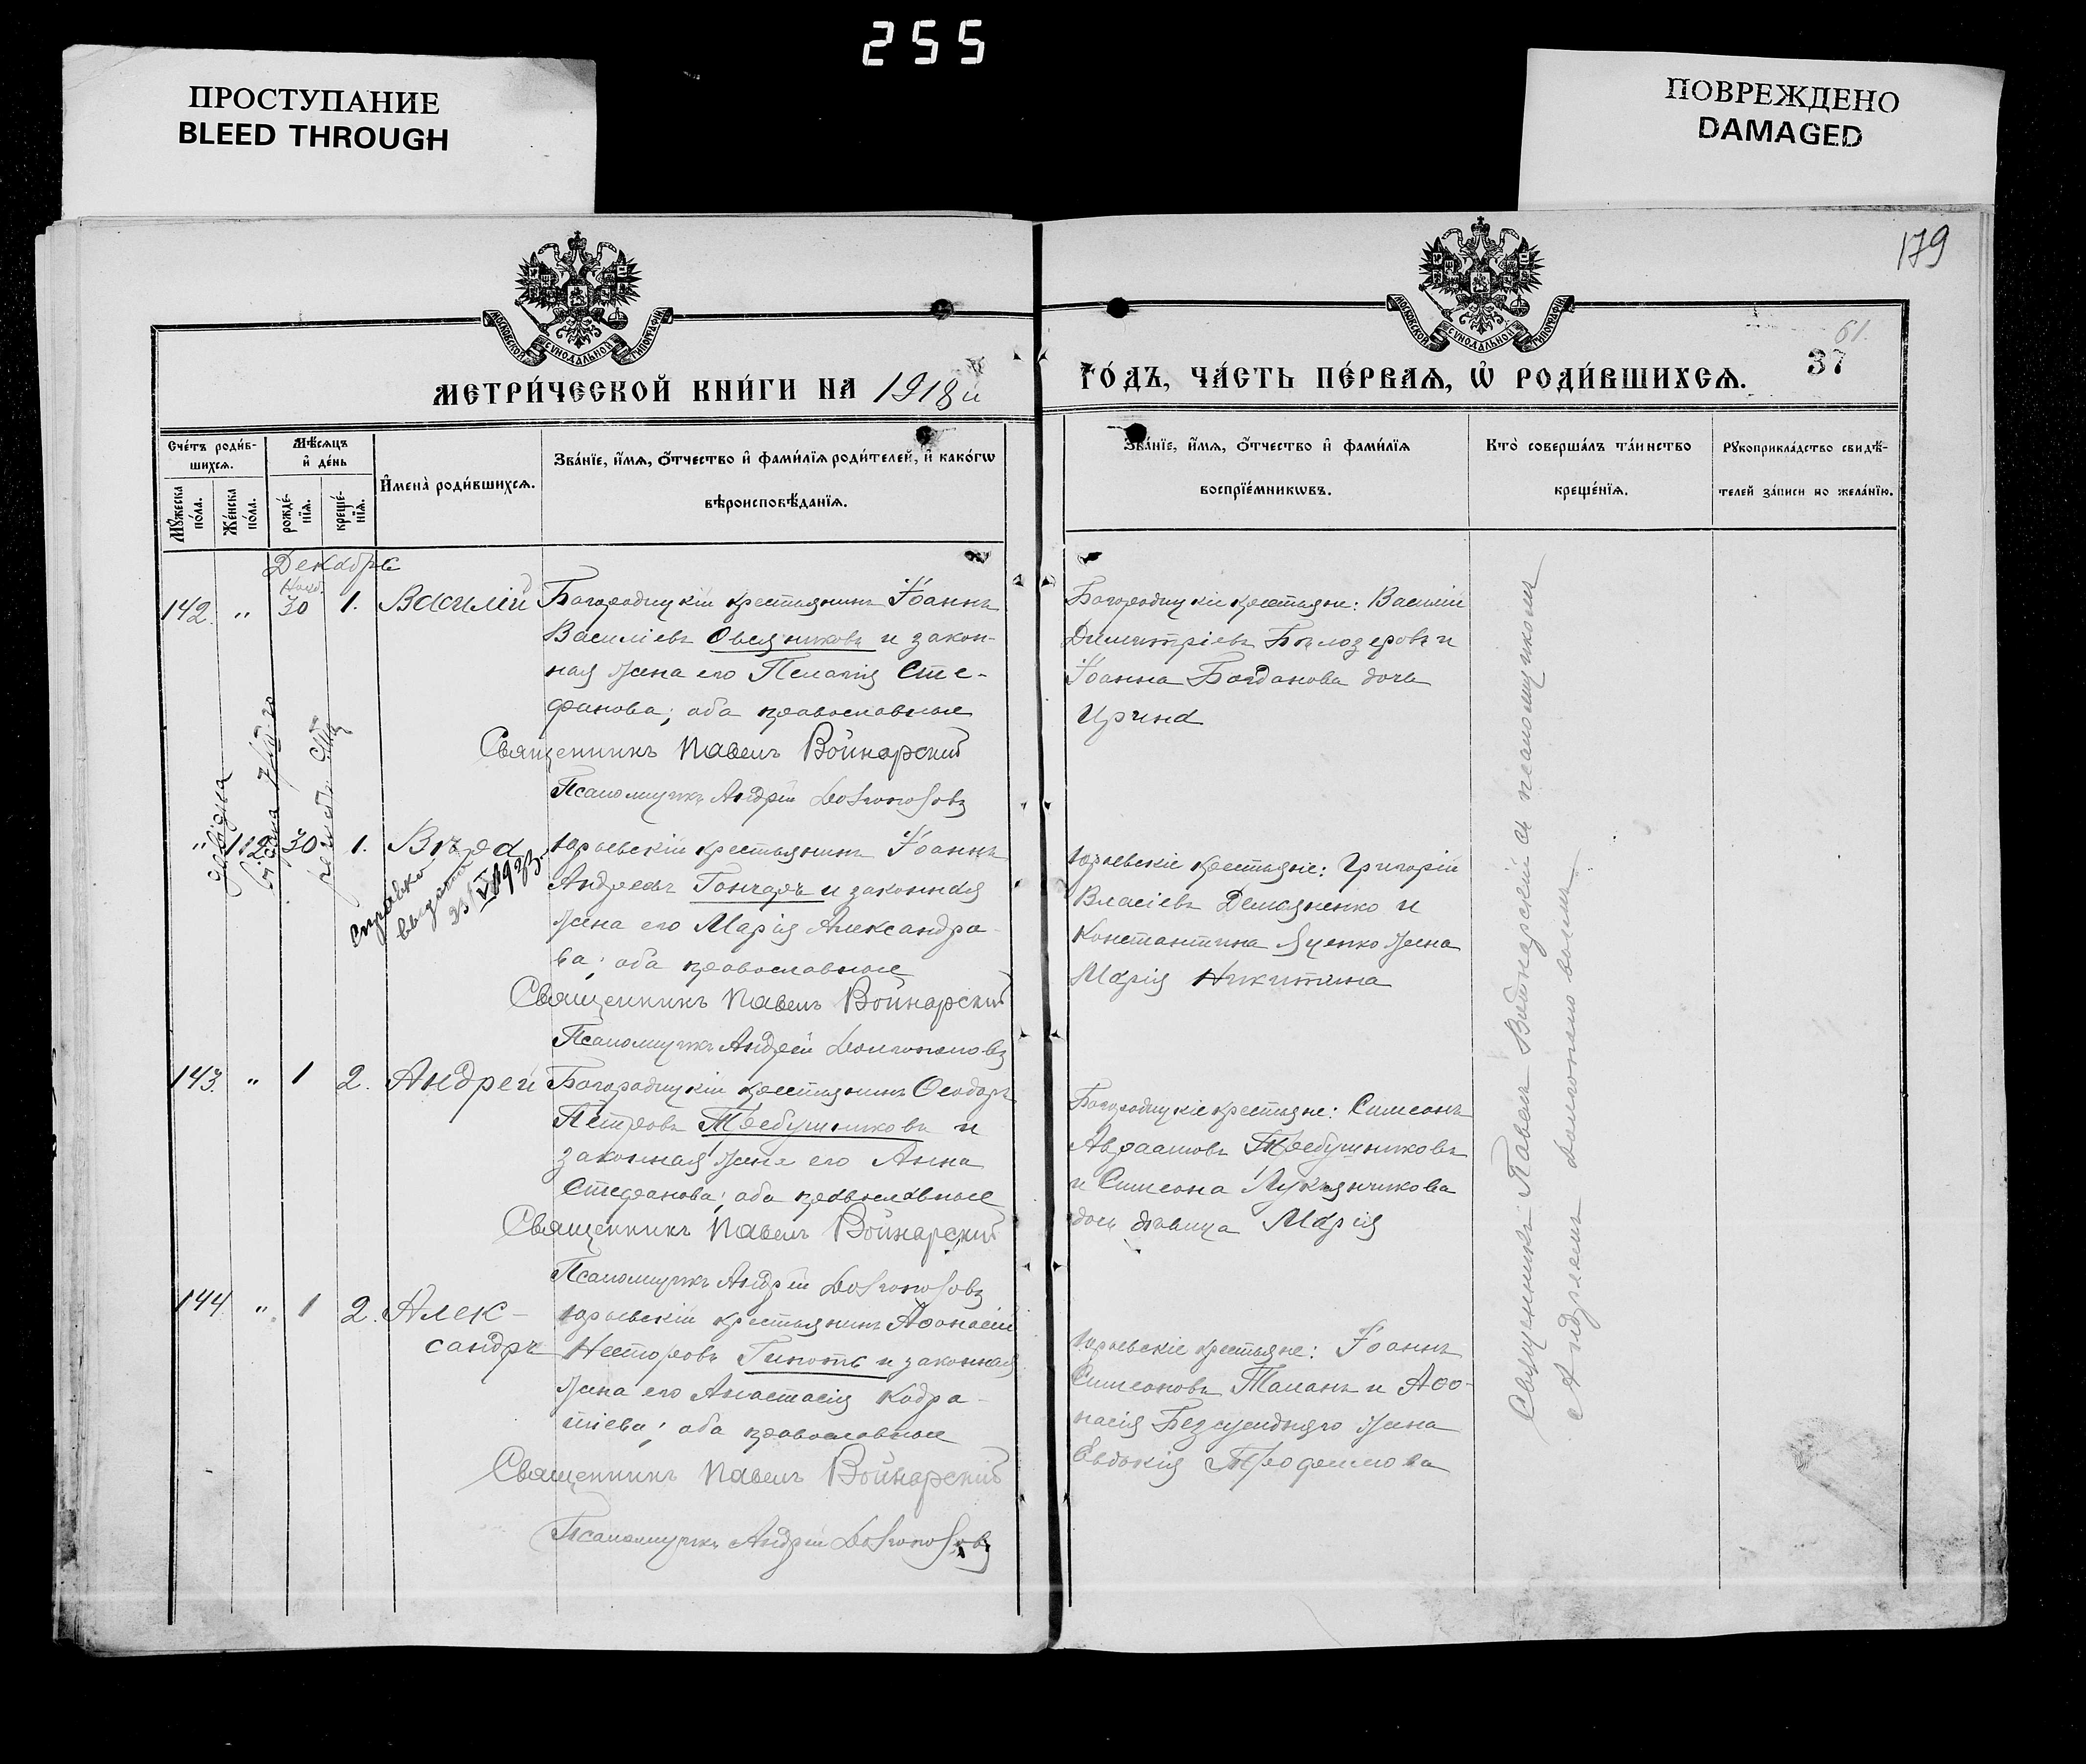 255
ПРОСТУПАНИЕ
BLEED THROUGH
ПОВРЕЖДЕНО
DAMAGED
179
61.
37
МОСКОВСКОЙ СѴНОДАЛЬНОЙ ТИПОГРАФІИ
МОСКОВСКОЙ СѴНОДАЛЬНОЙ ТИПОГРАФІИ
МЕТРИ́ЧЕСКОЙ КНИ́ГИ НА 1918й
ГО́ДЪ, ЧА́СТЬ ПЕ́РВАѦ, Ѡ҆ РОДИ́ВШИХСѦ.
Сче́тъ роди́в-
шихсѧ.
Мѣ́сѧцъ
и҆ де́нь
Мꙋ́жеска по́ла.
Же́нска по́ла.
рожде́-
нїѧ.
креще́-
нїѧ.
И҆мена̀ роди́вшихсѧ.
Зва́нїе, и҆́мѧ, ѻ҆́тчество и҆ фами́лїѧ роди́телей, и҆ како́гѡ
вѣроисповѣ́данїѧ.
Зва́нїе, и҆́мѧ, ѻ҆́тчество и҆ фами́лїѧ
воспрїе́мникѡвъ.
Кто̀ соверша́лъ та́инство
креще́нїѧ.
Рꙋкоприкла́дство свидѣ́-
телей за́писи по жела́нїю.
Декабрь
Нояб.
142. " 30 1. Василій
Богородицкій крестьянинъ Іоаннъ
Василіевъ Овсянниковъ и закон-
ная жена его Пелагія Сте-
фанова; оба православные
Священникъ Павелъ Войнарский
Псаломщикъ Андрей Долгополовъ
Богородицкіе крестьяне: Василій
Димитріевъ Бѣлозеровъ и
Іоанна Богданова дочь
Ирина
" 112 30 1. Вѣра
справка
выдана
23/VI 1933.
Юрьевскій крестьянинъ Іоаннъ
Андреевъ Гончаръ и законная
жена его Марія Александро-
ва; оба православные
Священникъ Павелъ Войнарский
Псаломщикъ Андрей Долгополовъ
Юрьевскіе крестьяне: Григорій
Власіевъ Демьяненко и
Константина Яценко жена
Марія Никитина
143. " 1 2. Андрей
Богородицкій крестьянинъ Ѳеодоръ
Петровъ Требушниковъ и
законная жена его Анна
Стефанова; оба православные
Священникъ Павелъ Войнарский
Псаломщикъ Андрей Долгополовъ
Богородицкіе крестьяне: Симеонъ
Авраамовъ Требушниковъ
и Симеона Лукьянчикова
дочь дѣвица Марія
144 " 1 2. Алек-
сандръ
Юрьевскій крестьянинъ Аѳанасій
Несторовъ и законная
жена его Анастасія Кодра-
тіева; оба православные
Священникъ Павелъ Войнарский
Псаломщикъ Андрей Долгополовъ
Юрьевскіе крестьяне: Іоаннъ
Симеоновъ Таманъ и Аѳа-
насія жена
Евдокія Трофимова
Священникъ Павелъ Войнарскій съ псаломщикомъ
Андреемъ Долгополовымъ